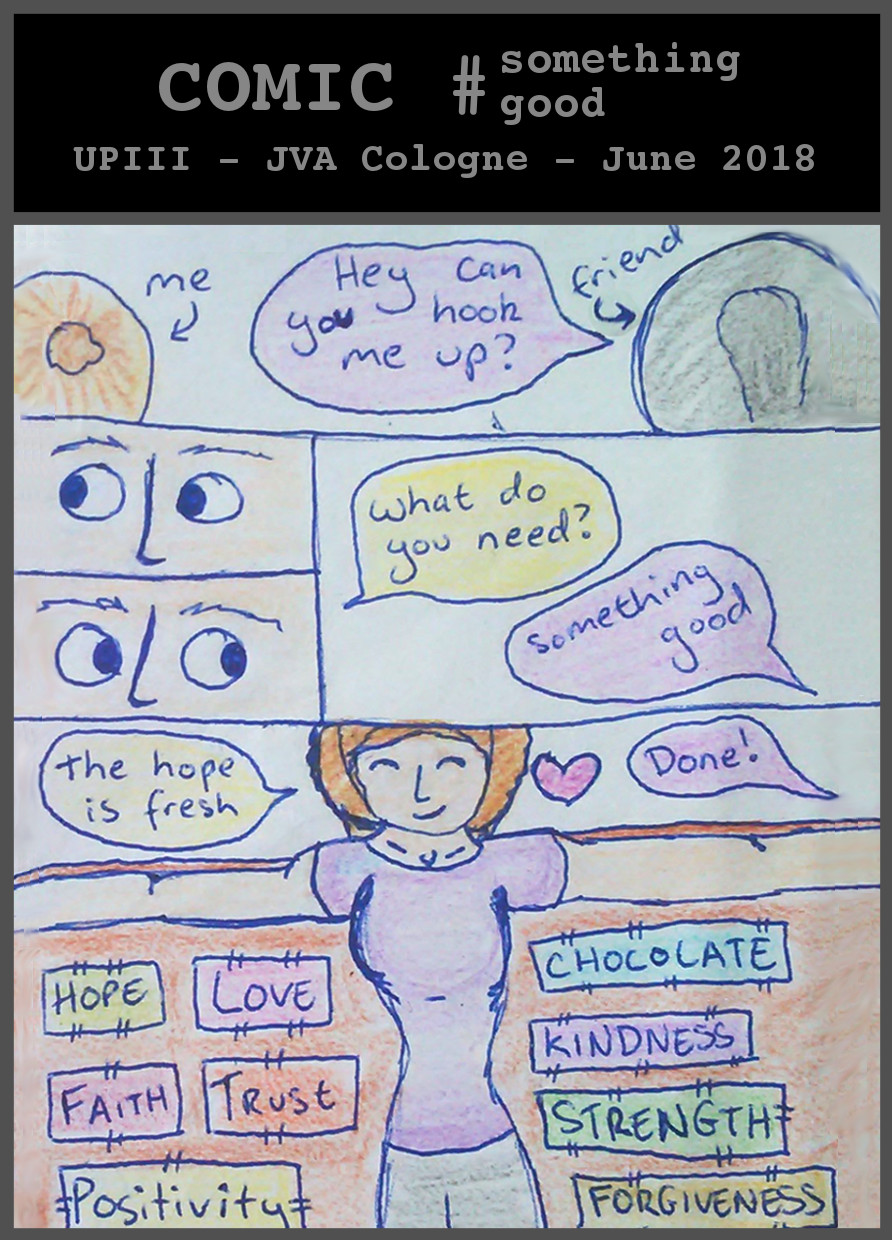 COMIC #something
good
UPIII - JVA Cologne - June 2018
me
Hey can
you hook
me up?
friend
what do
you need?
something
good
the hope
is fresh
Done!
HOPE
LOVE
FAiTH
TRUSt
Positivity
CHOCOLATE
KINDNESS
STRENGTH
FORGIVENESS